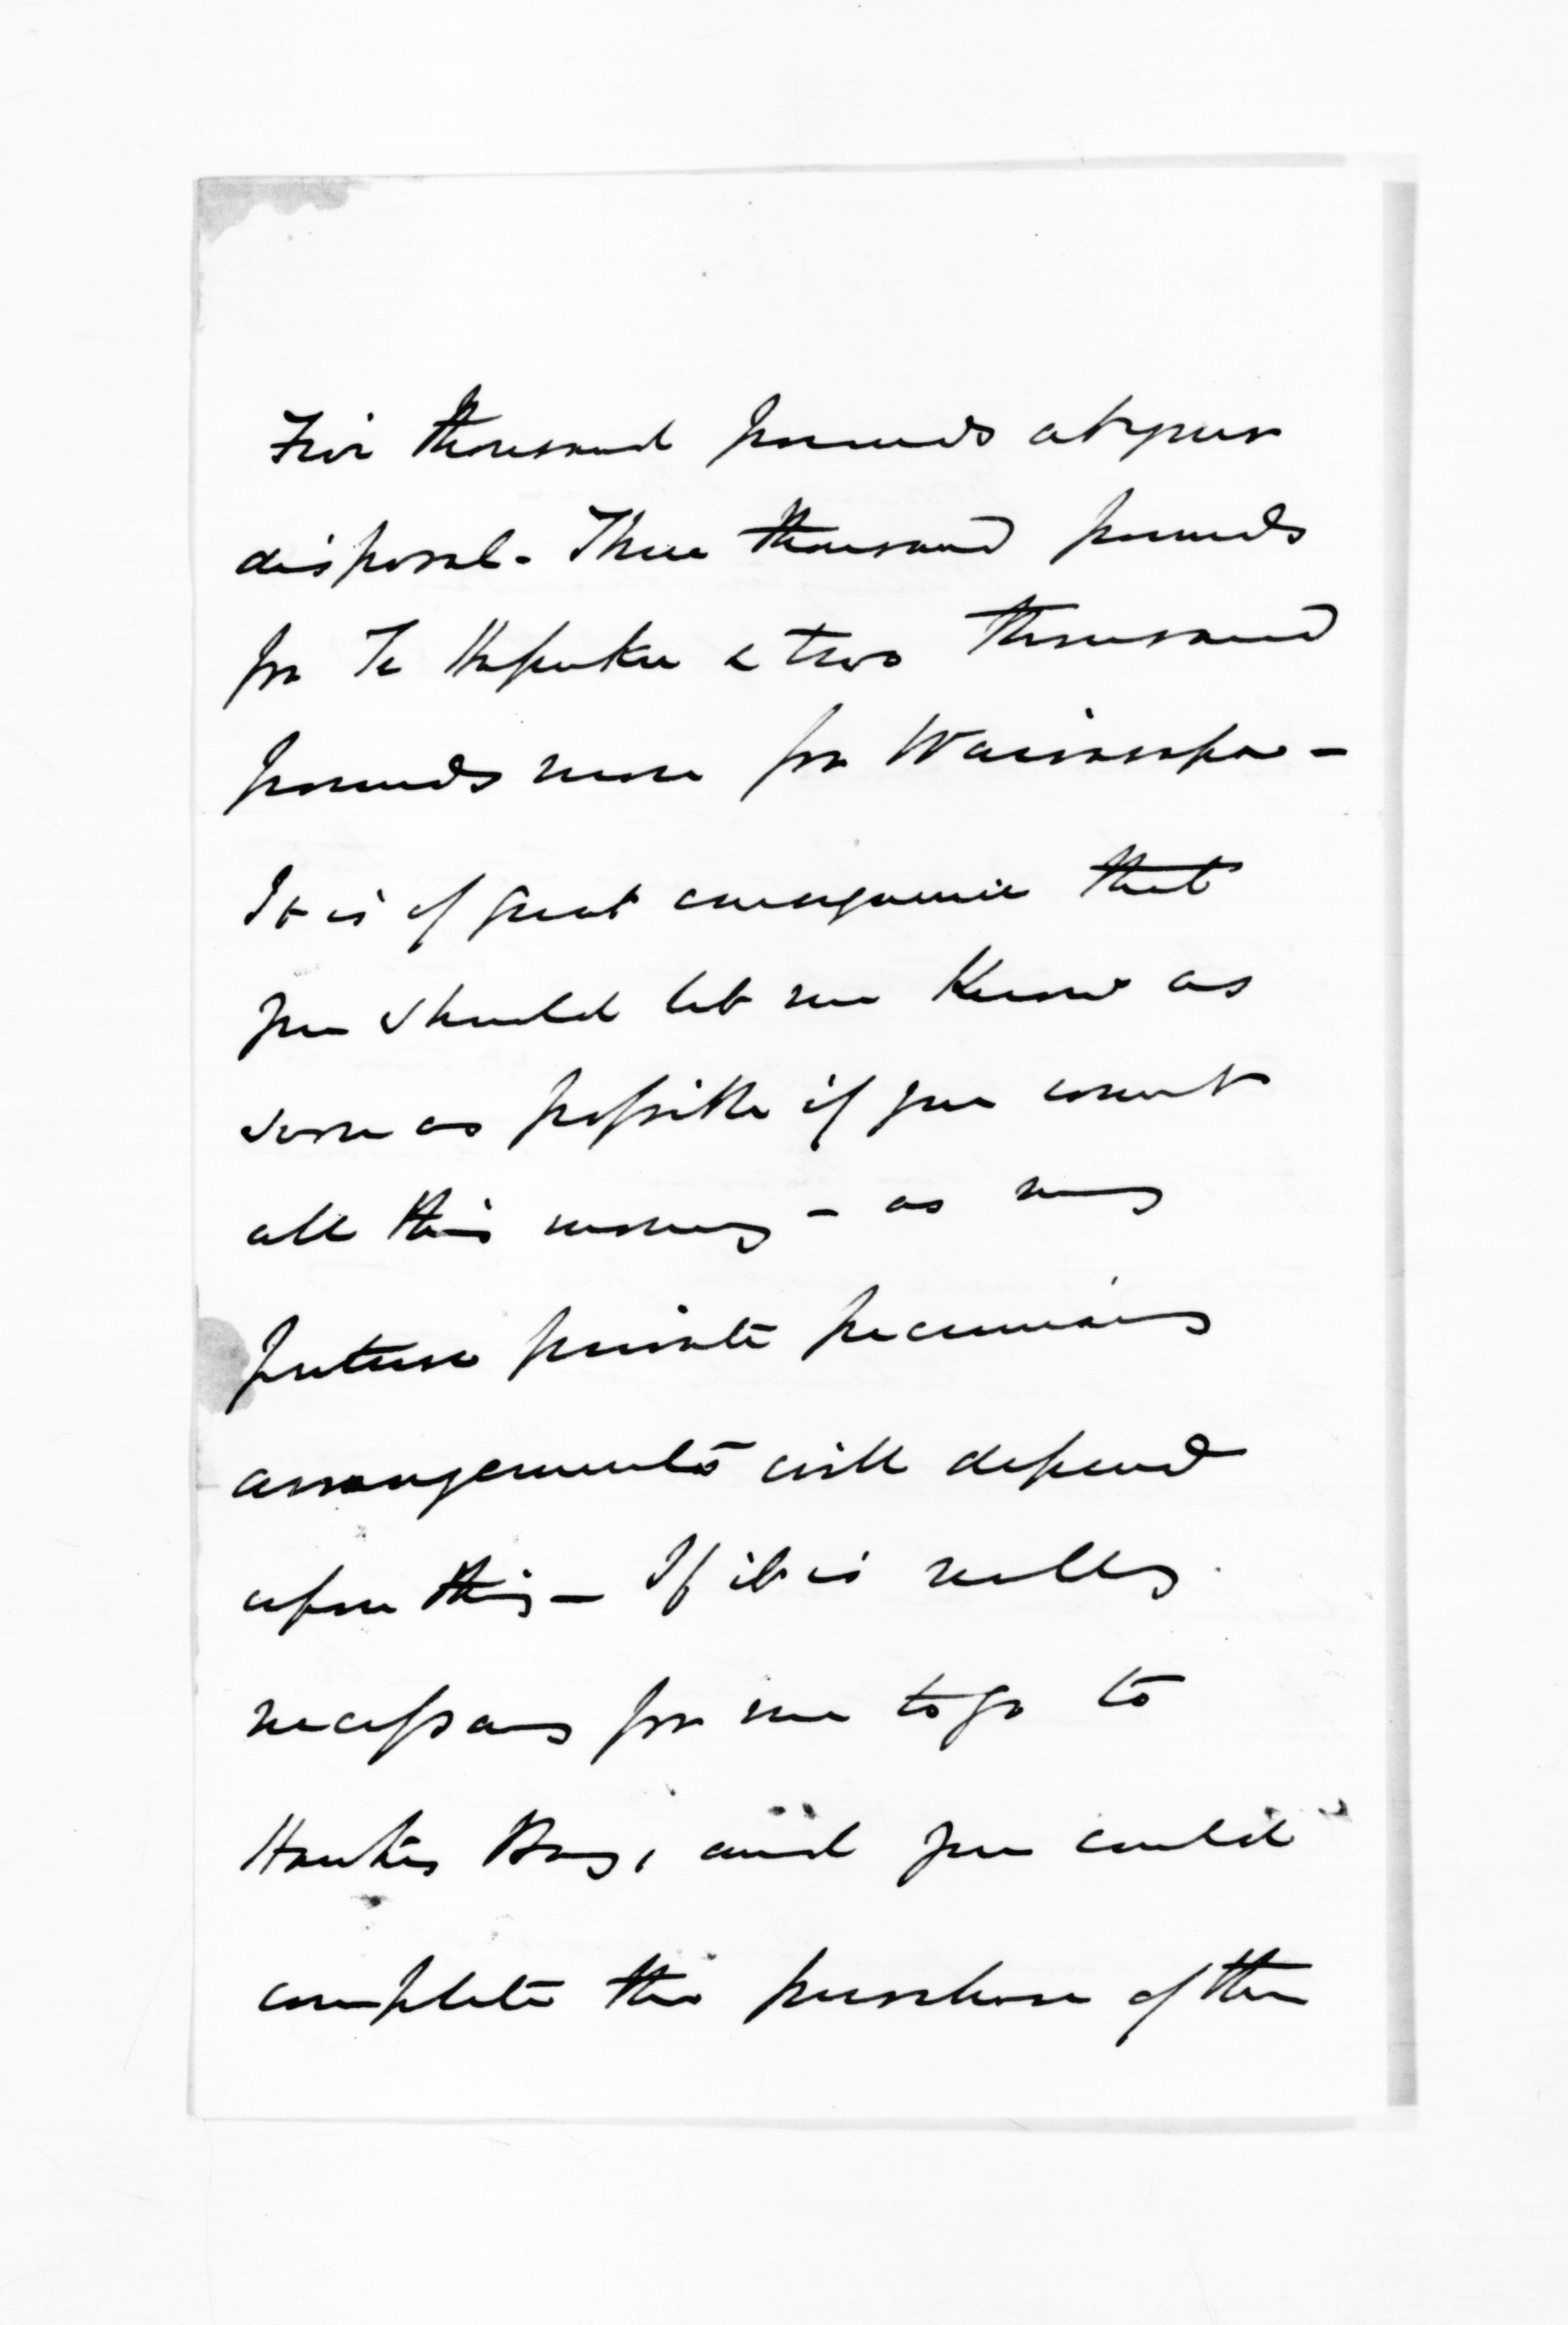 Five thousand pounds at your
disposal - Three thousand pounds
for Te Hapuku & two thousand
pounds more for Wairarapa -
It is of great consequence that
you should let me know as
soon as possible if you want
all this money - as my
future private pecuniary
arrangements will depend
upon this - If it is really
necessary for me to go to
Hawkes Bay, and you could
complete the purchase of the